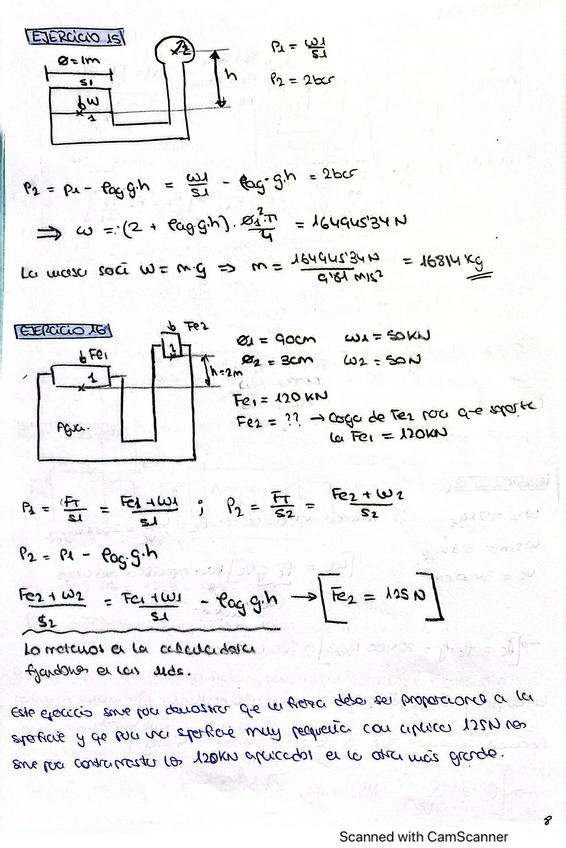 EJERCICIO 15
Ø=1m
S1
W
1
P2
h
P1 = W1/S1
P2 = 2bar
P2 = P1 - ρag·g·h = W1/S1 - ρag·g·h = 2bar
⇒ W = (2 + ρag·g·h)·Ø1²·π/4 = 164945'34 N
La masa será W = m·g ⇒ m = 164945'34N/9'81 m/s² = 16814 Kg
EJERCICIO 16
Fe1
1
Agua.
Fe2
2
h=2m
Ø1 = 90cm W1 = 50KN
Ø2 = 3cm W2 = 50N
Fe1 = 120KN
Fe2 = ?? → Carga de Fe2 para que soporte
la Fe1 = 120KN
P1 = FT/S1 = Fe1+W1/S1 ; P2 = FT/S2 = Fe2+W2/S2
P2 = P1 - ρag·g·h
Fe2+W2/S2 = Fe1+W1/S1 - ρag·g·h → [Fe2 = 125N]
Lo metemos en la calculadora
fijándonos en las uds.
Este ejercicio sirve para demostrar que la fuerza debe ser proporcional a la
superficie y que para una superficie muy pequeña con aplicar 125N nos
sirve para contrarrestar los 120KN aplicados en la otra más grande.
8
Scanned with CamScanner